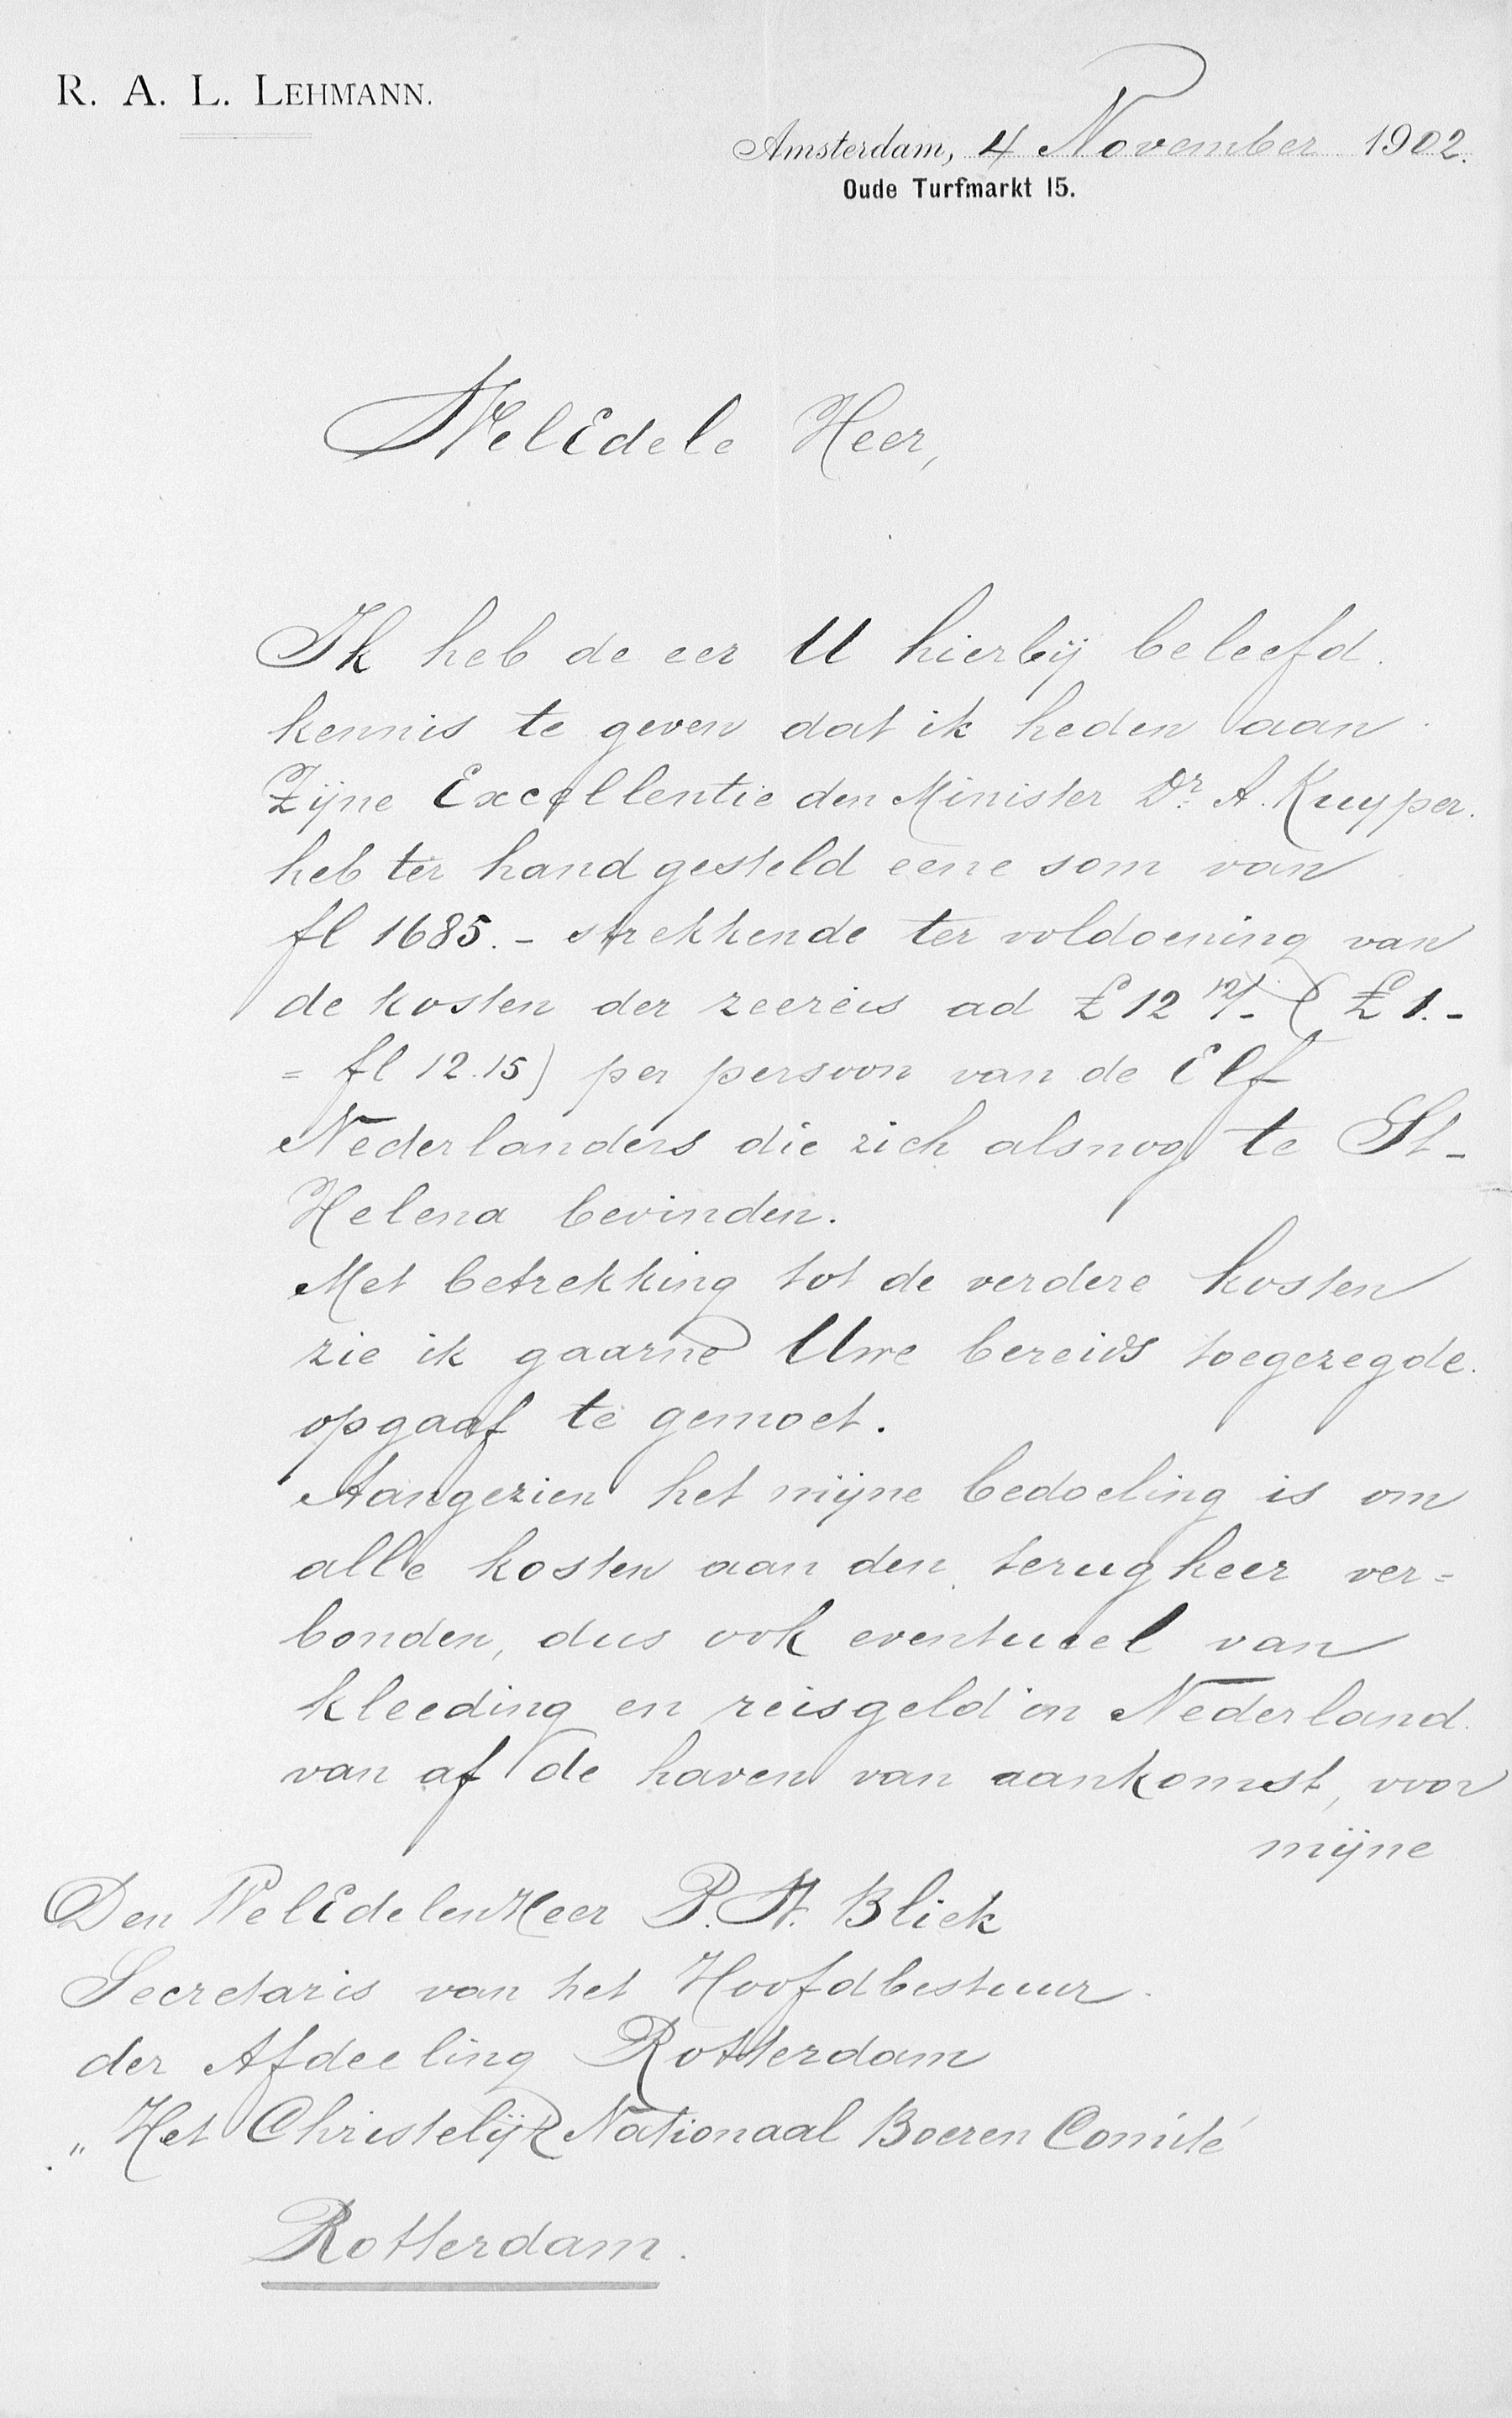 R. A. L. LEHMANN.
Amsterdam, 4 November 1902.
Oude Turfmarkt 15.
WelEdele Heer,
Ik heb de eer U hierbij beleefd
kennis te geven dat ik heden aan
Zijne Excellentie den Minister Dr. A. Kuyper
heb ter hand gesteld eene som van
fl 1685.- strekkende ter voldoening van
de kosten der zeereis ad £ 12 12/- (£ 1.-
= fl 12.15) per persoon van de Elf
Nederlanders die zich alsnog te St-
Helena bevinden.
Met betrekking tot de verdere kosten
zie ik gaarne Uwe bereids toegezegde
opgaaf te gemoet.
Aangezien het mijne bedoeling is om
alle kosten aan den terugkeer ver=
bonden, dus ook eventueel van
kleeding en reisgeld in Nederland
van af de haven van aankomst, voor
mijne
Den WelEdelenHeer P. A. Bliek
Secretaris van het Hoofdbestuur
der Afdeeling Rotterdam
„Het Christelijk Nationaal Boeren Comité
Rotterdam.